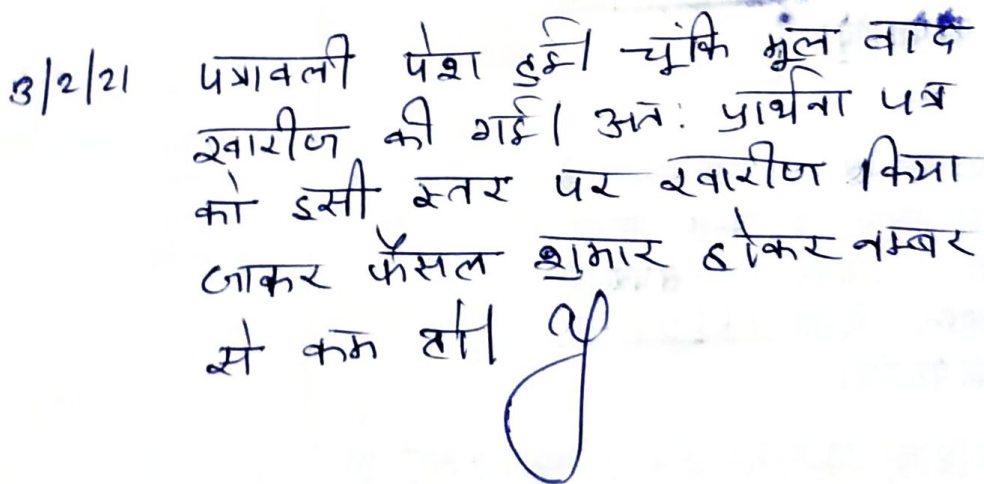 3/2/21 पत्रावली पेश हुई। चूंकि मूल वाद
खारीज की गई। अतः प्रार्थना पत्र
को इसी स्तर पर खारीज किया
जाकर फैसल शुमार होकर नम्बर
से कम हो।